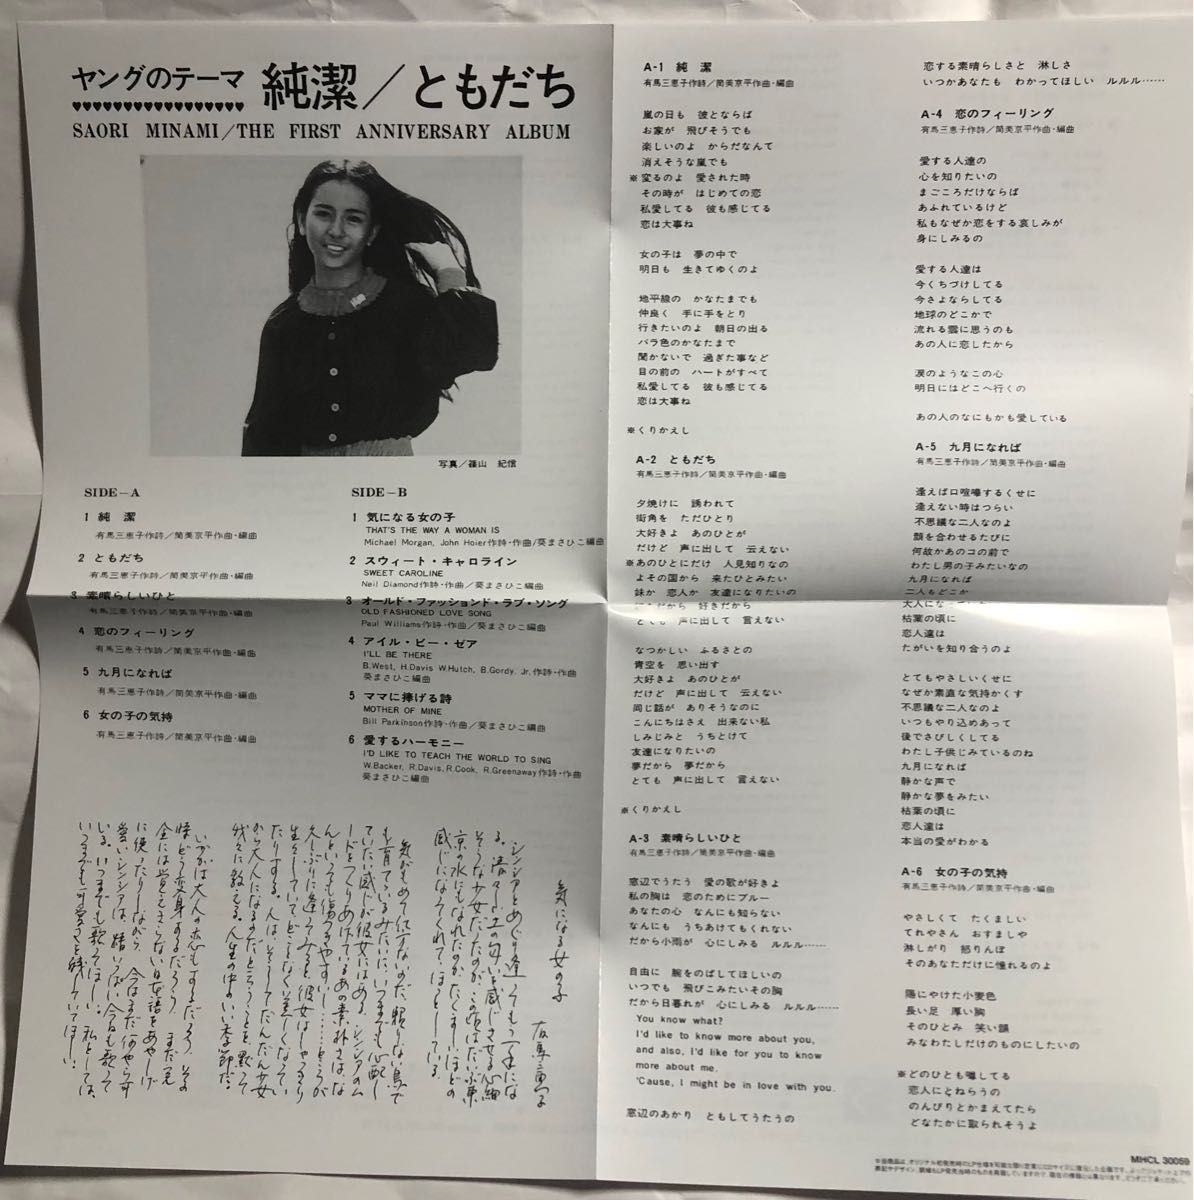 ヤングのテーマ 純潔／ともだち
♥♥♥♥♥♥♥♥♥♥♥♥♥♥♥♥♥
SAORI MINAMI/THE FIRST ANNIVERSARY ALBUM
写真／篠山 紀信
SIDE－A
1 純 潔
有馬三恵子作詩／筒美京平作曲・編曲
2 ともだち
有馬三恵子作詩／筒美京平作曲・編曲
3 素晴らしいひと
有馬三恵子作詩／筒美京平作曲・編曲
4 恋のフィーリング
有馬三恵子作詩／筒美京平作曲・編曲
5 九月になれば
有馬三恵子作詩／筒美京平作曲・編曲
6 女の子の気持
有馬三恵子作詩／筒美京平作曲・編曲
SIDE－B
1 気になる女の子
THAT'S THE WAY A WOMAN IS
Michael Morgan, John Hoier作詩・作曲／葵まさひこ編曲
2 スウィート・キャロライン
SWEET CAROLINE
Neil Diamond作詩・作曲／葵まさひこ編曲
3 オールド・ファッションド・ラブ・ソング
OLD FASHIONED LOVE SONG
Paul Williams作詩・作曲／葵まさひこ編曲
4 アイル・ビー・ゼア
I'LL BE THERE
B.West, H.Davis W.Hutch, B.Gordy, Jr.作詩・作曲
葵まさひこ編曲
5 ママに捧げる詩
MOTHER OF MINE
Bill Parkinson作詩・作曲／葵まさひこ編曲
6 愛するハーモニー
I'D LIKE TO TEACH THE WORLD TO SING
W.Backer, R.Davis, R.Cook, R.Greenaway作詩・作曲
葵まさひこ編曲
気になる女の子 有馬三恵子
シンシアとめぐり逢ってもう一年にな
る。清々しい土の匂いを感じさせる心細
そうな少女だったのが、この頃はだいぶ東
京の水にもなれたのか、たくましいほどの
感じになってくれて、ほっとしている。
いつまでも可愛さを残していてほしい。
A-1 純 潔
有馬三恵子作詩／筒美京平作曲・編曲
嵐の日も 彼とならば
お家が 飛びそうでも
楽しいのよ からだなんて
消えそうな嵐でも
※変るのよ 愛された時
その時が はじめての恋
私愛してる 彼も感じてる
恋は大事ね
女の子は 夢の中で
明日も 生きてゆくのよ
地平線の かなたまでも
仲良く 手に手をとり
行きたいのよ 朝日の出る
バラ色のかなたまで
聞かないで 過ぎた事など
目の前の ハートがすべて
私愛してる 彼も感じてる
恋は大事ね
※くりかえし
A-2 ともだち
有馬三恵子作詩／筒美京平作曲・編曲
夕焼けに 誘われて
街角を ただひとり
大好きよ あのひとが
だけど 声に出して 云えない
※あのひとにだけ 人見知りなの
よその国から 来たひとみたい
妹か 恋人か 友達になりたいの
だから 好きだから
とても 声に出して 言えない
なつかしい ふるさとの
青空を 思い出す
大好きよ あのひとが
だけど 声に出して 云えない
同じ話が ありそうなのに
こんにちはさえ 出来ない私
しみじみと うちとけて
友達になりたいの
夢だから 夢だから
とても 声に出して 言えない
※くりかえし
A-3 素晴らしいひと
有馬三恵子作詩／筒美京平作曲・編曲
窓辺でうたう 愛の歌が好きよ
私の胸は 恋のためにブルー
あなたの心 なんにも知らない
なんにも うちあけてもくれない
だから小雨が 心にしみる ルルル……
自由に 腕をのばしてほしいの
いつでも 飛びこみたいその胸
だから日暮れが 心にしみる ルルル……
You know what?
I'd like to know more about you,
and also, I'd like for you to know
more about me.
'Cause, I might be in love with you.
窓辺のあかり ともしてうたうの
恋する素晴らしさと 淋しさ
いつかあなたも わかってほしい ルルル……
A-4 恋のフィーリング
有馬三恵子作詩／筒美京平作曲・編曲
愛する人達の
心を知りたいの
まごころだけならば
あふれているけど
私もなぜか恋をする哀しみが
身にしみるの
愛する人達は
今くちづけしてる
今さよならしてる
地球のどこかで
流れる雲に思うのも
あの人に恋したから
涙のようなこの心
明日にはどこへ行くの
あの人のなにもかも愛している
A-5 九月になれば
有馬三恵子作詩／筒美京平作曲・編曲
逢えば口喧嘩するくせに
逢えない時はつらい
不思議な二人なのよ
顔を合わせるたびに
何故かあのコの前で
わたし男の子みたいなの
九月になれば
二人もどこか
大人に
枯葉の頃に
恋人達は
たがいを知り合うのよ
とてもやさしいくせに
なぜか素直な気持かくす
不思議な二人なのよ
いつもやり込めあって
後でさびしくしてる
わたし子供じみているのね
九月になれば
静かな声で
静かな夢をみたい
枯葉の頃に
恋人達は
本当の愛がわかる
A-6 女の子の気持
有馬三恵子作詩／筒美京平作曲・編曲
やさしくて たくましい
てれやさん おすましや
淋しがり 怒りんぼ
そのあなただけに憧れるのよ
陽にやけた小麦色
長い足 厚い胸
そのひとみ 笑い顔
みなわたしだけのものにしたいの
※どのひとも噂してる
恋人にとねらうの
のんびりとかまえてたら
どなたかに取られそうよ
MHCL 30059